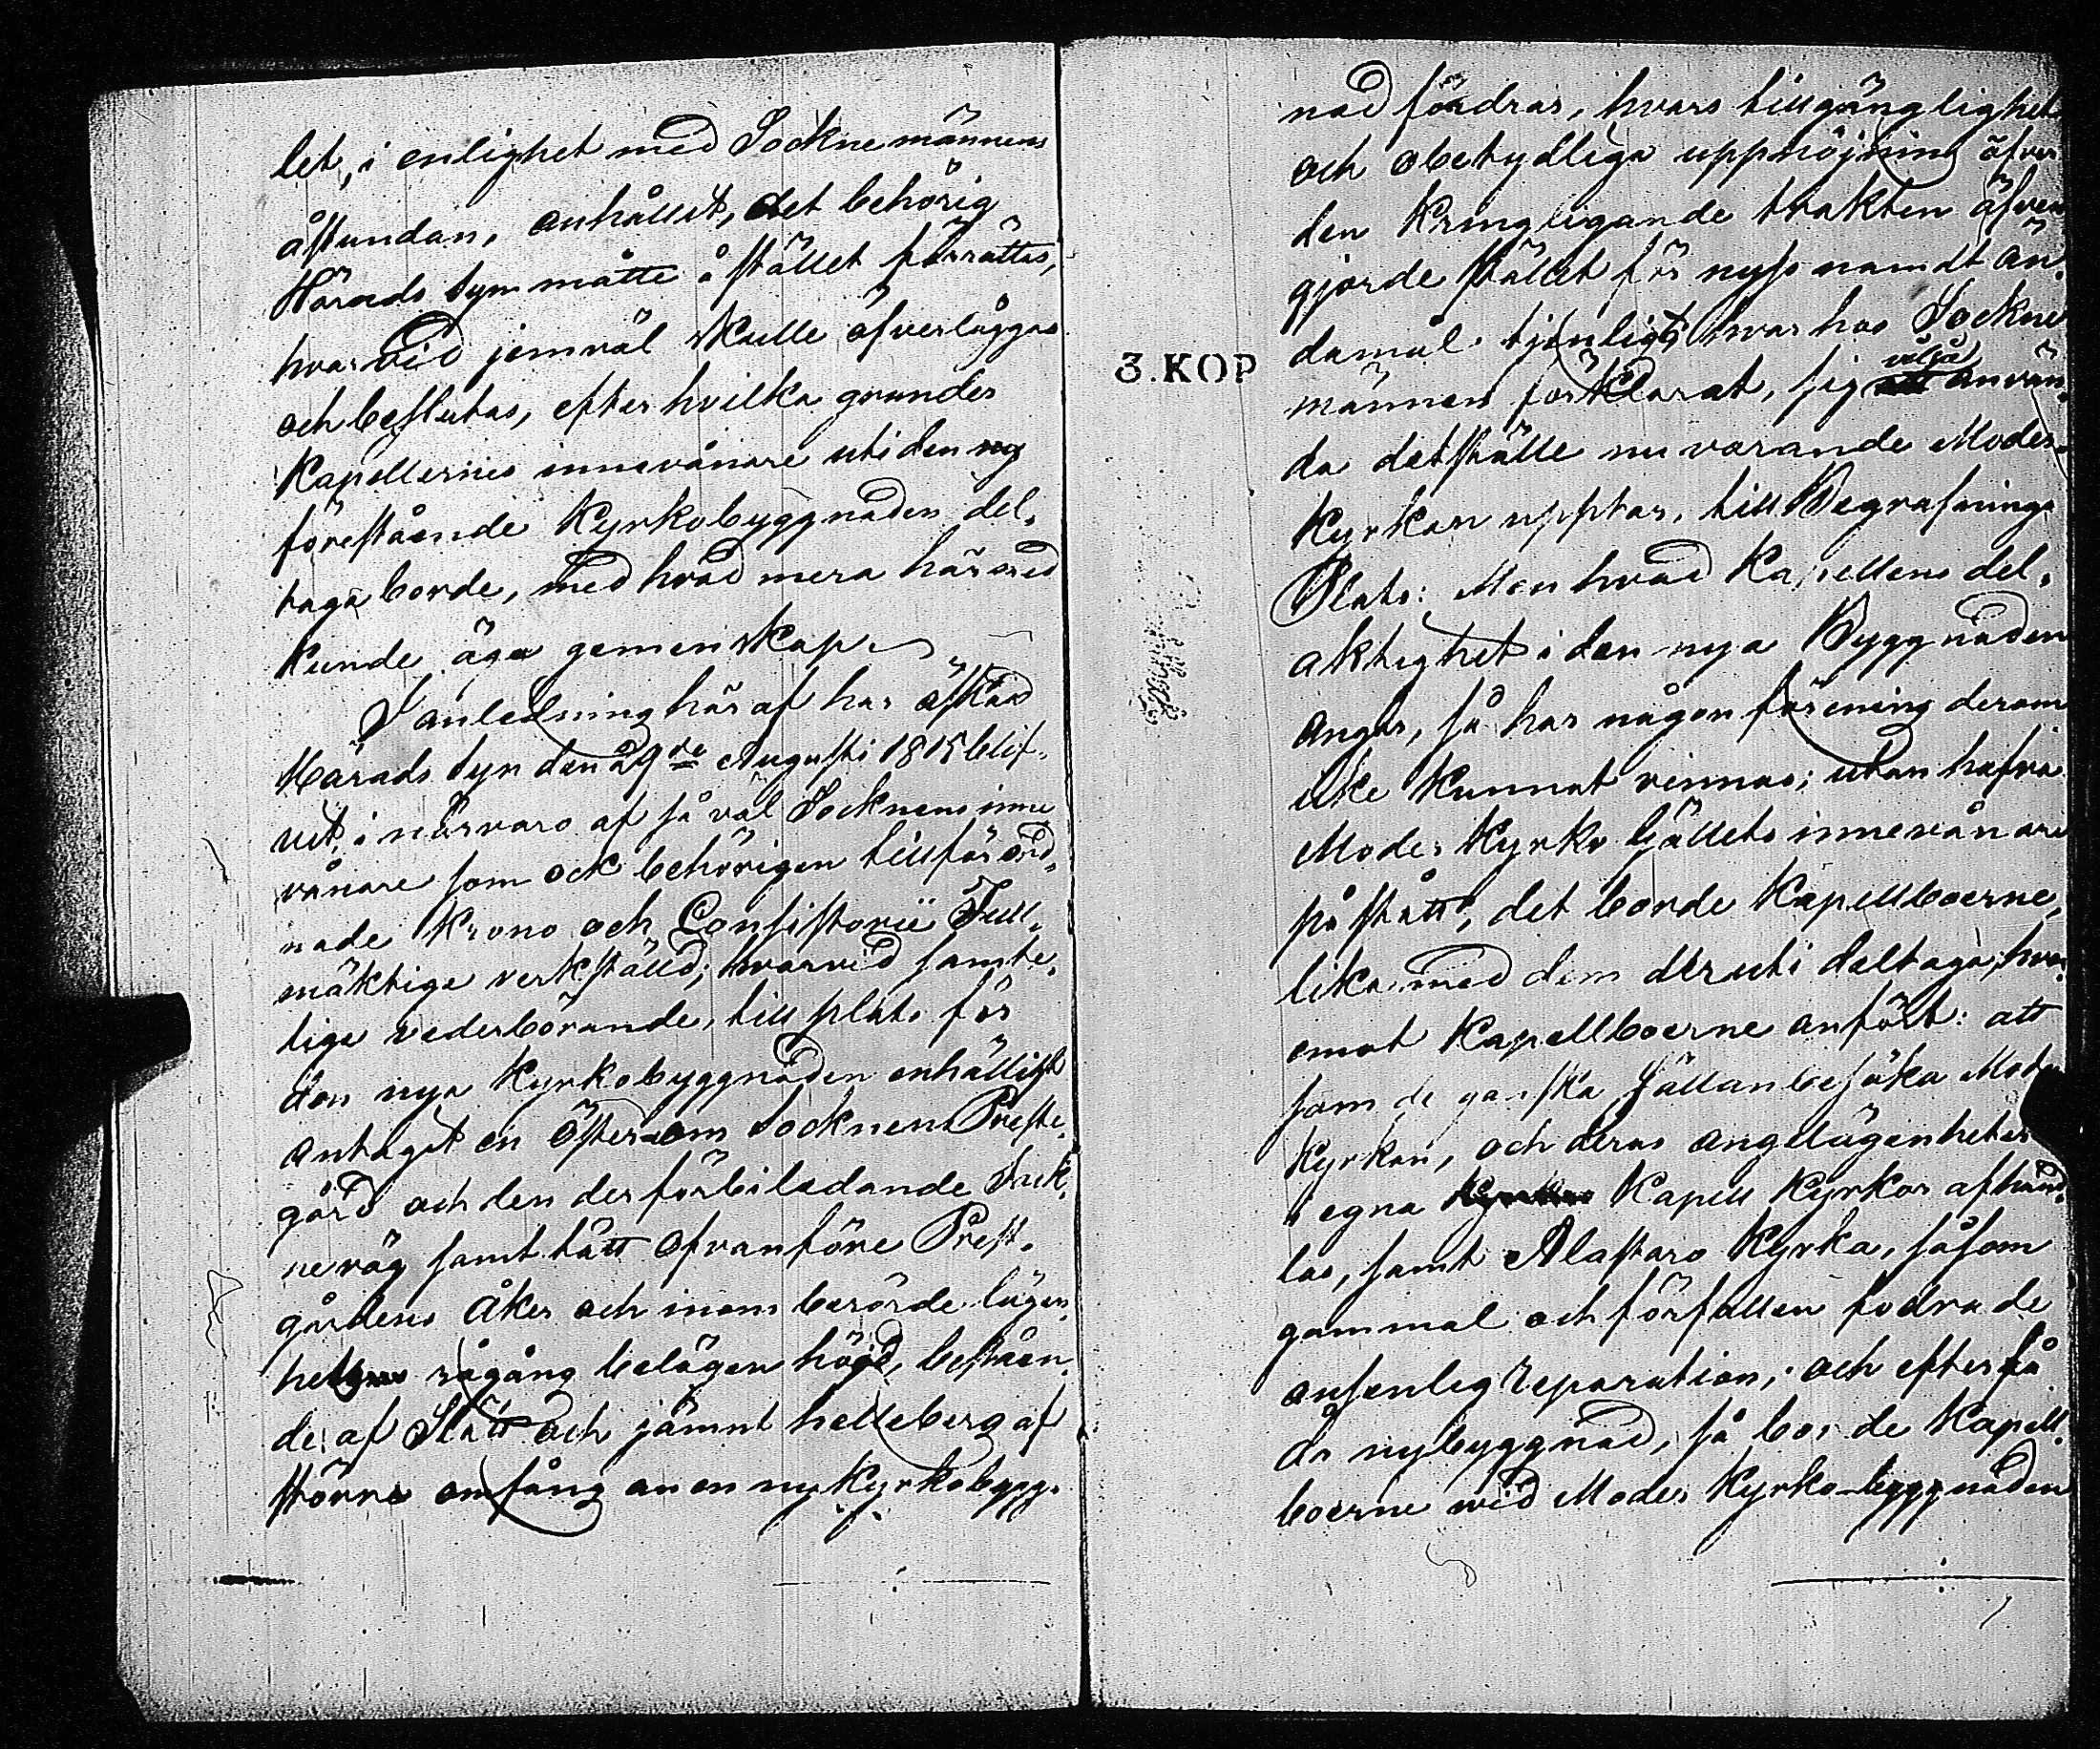 let, i enlighet med Sockne männens
åstundan, anhållit, det behörig
Härads syn måtte å stället förrättas,
hvarvid jemväl skulle öfverläggas
och beslutas, efter hvilka grunder
Kapellernes innevånare uti den ny
föreståendе Kyrkobyggnaden del,
taga borde, med hvad mera härmed
kunde äga gemenskap.
I anledning häraf har äskad
Härads syn den 29de Augusti 1815 blif,
vit, i närvaro af så väl Socknens inne
vånare som ock behörigen tillförord,
nade Krono och Consistorii Full,
mäktige verkställd; hvarvid samte,
lige vederbörande, till plats för
den nya Kyrkobyggnaden enhälligt
antagit en Öster om Socknens Preste,
gård och den der förbiledande Sock,
ne väg samt tätt ofvanföre Prest,
gårdens åker och inom berörde lägen,
het rågång belägen höjd, bestående
de af Slätt och jämnt helleberg af
större omfång än en ny Kyrkobygg,
nad fördras, hvars tillgänglighet
och obetydliga upphöjning öfver
den kringligande trakten äfven
gjorde stället för nyss namdt än,
damål tjenligt; hvarhos Sockne
3.KOP
männen förklarat, sig vilja använ,
da det ställe nu varande Moder
Kyrkan upptar, till Begrafnings
Plats: Men hvad Kapellens del,
aktighet i den nya Byggnaden
angår, så har någon förening derom
icke kunnat vinnas; utan hafva
Moder Kyrko Gällets innevånare
påstått, det borde Kapellboerne,
lika med dem deruti deltaga, hvar,
emot Kapellboerne anfört: att
som de ganska sällan besöka Moder
Kyrkan, och deras angelägenheter
i egna Kapell Kyrkor afhand,
las, samt Alastaro Kyrka, såsom
gammal och förfallen fodra de
ansenlig reparation, och efter få
år nybyggnad, så bor de Kapell,
boerne vid Moder Kyrko-byggnaden